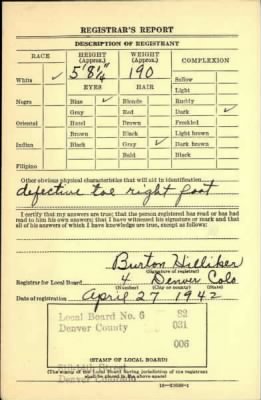 REGISTRAR'S REPORT
DESCRIPTION OF REGISTRANT
RACE HEIGHT (Approx.) WEIGHT (Approx.) COMPLEXION
White ✓ 5' 8½" 190 Sallow
EYES HAIR Light
Negro Blue ✓ Blonde Ruddy
Gray Red Dark ✓
Oriental Hazel Brown Freckled
Brown Black Light brown
Indian Black Gray ✓ Dark brown
Bald Black
Filipino
Other obvious physical characteristics that will aid in identification
defective toe right foot
I certify that my answers are true; that the person registered has read or has had
read to him his own answers; that I have witnessed his signature or mark and that
all of his answers of which I have knowledge are true, except as follows:
Burton Hilliker
(Signature of registrar)
Registrar for Local Board 4 Denver Colo
(Number) (City or county) (State)
Date of registration April 27 1942
Local Board No. 6 82
Denver County 031
006
Street
Denver
(STAMP OF LOCAL BOARD)
(The stamp of the Local Board having jurisdiction of the registrant
shall be placed in the above space)